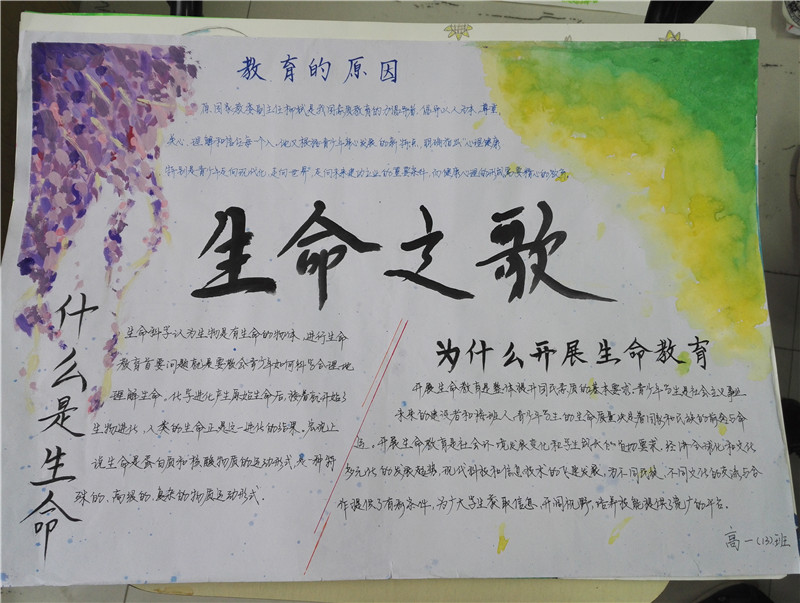 教育的原因
原国家教委副主任柳斌是我国素质教育的力倡者,倡导以人为本,尊重,
关心,理解和信任每个人
特别是青少年走向现代化,走向世界,走向未来建功立业的重要条件,而健康心理的形成需要精心的教育
生命之歌
什么是生命
生命科学认为生物是有生命的物体,进行生命
教育首要问题就是要教会青少年如何科学合理地
理解生命。化学进化产生原始生命后,接着就开始了
生物进化,人类的生命正是这一进化的结果。恩格斯说
说生命是蛋白质和核酸物质的运动形式,是一种特
殊的、高级的、复杂的物质运动形式.
为什么开展生命教育
开展生命教育是整体提升国民素质的基本要求,青少年学生是社会主义事业
未来的建设者和接班人,青少年学生的生命质量决定着国家和民族的前途与命
运。开展生命教育是社会环境发展变化和学生成长的迫切要求。经济全球化和文化
多元化的发展趋势,现代科技和信息技术的飞速发展,为不同民族、不同文化的交流与合
作提供了有利条件,为广大学生获取信息、开阔视野、培养技能提供了宽广的平台。
高一(13)班